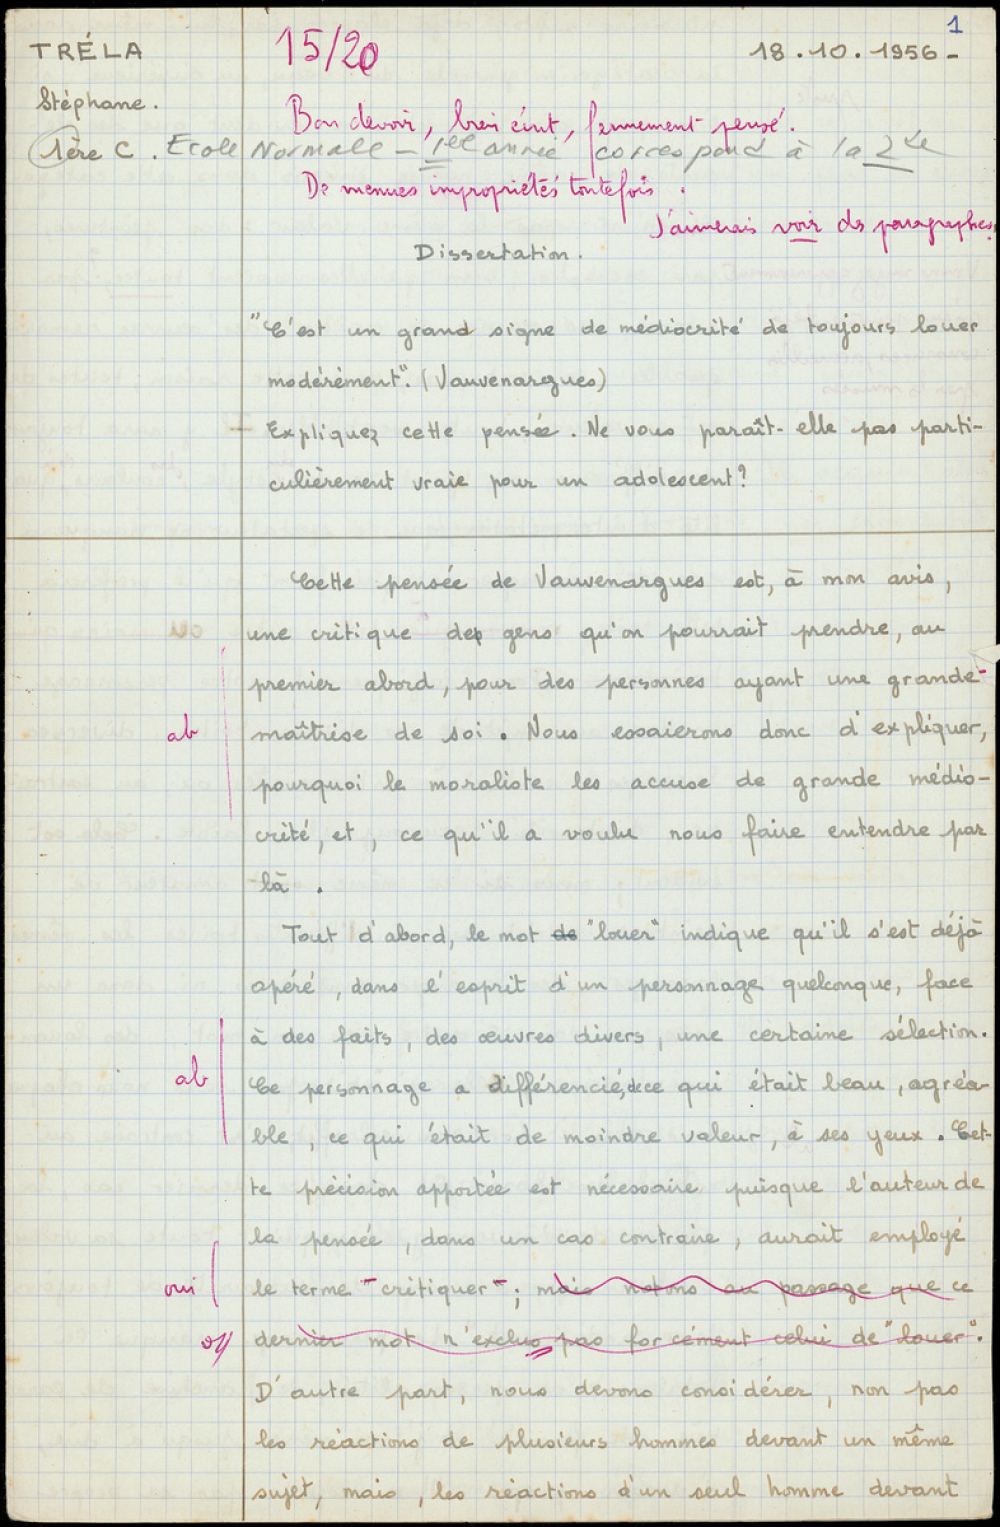 1
TRÉLA
15/20
18.10.1956-
Stéphane.
Bon devoir, bien écrit, fermement pensé.
1ère C. Ecole Normale - 1ère année correspond à la 2de
De menues impropriétés toutefois.
J'aimerais voir des paragraphes.
Dissertation.
"C'est un grand signe de médiocrité de toujours louer
modérément". (Vauvenargues)
Expliquez cette pensée. Ne vous paraît-elle pas parti-
culièrement vraie pour un adolescent?
Cette pensée de Vauvenargues est, à mon avis,
une critique des gens qu'on pourrait prendre, au
premier abord, pour des personnes ayant une grande
ab maîtrise de soi. Nous essaierons donc d'expliquer,
pourquoi le moraliste les accuse de grande médio-
crité, et, ce qu'il a voulu nous faire entendre par
là.
Tout d'abord, le mot de "louer" indique qu'il s'est déjà
opéré, dans l'esprit d'un personnage quelconque, face
à des faits, des œuvres divers, une certaine sélection.
ab Ce personnage a différencié, de ce qui était beau, agréa-
ble, ce qui était de moindre valeur, à ses yeux. Cet-
te précision apportée est nécessaire puisque l'auteur de
la pensée, dans un cas contraire, aurait employé
oui le terme "critiquer"; mais notons au passage que ce
dernier mot n'exclus pas forcément celui de "louer".
D'autre part, nous devons considérer, non pas
les réactions de plusieurs hommes devant un même
sujet, mais, les réactions d'un seul homme devant